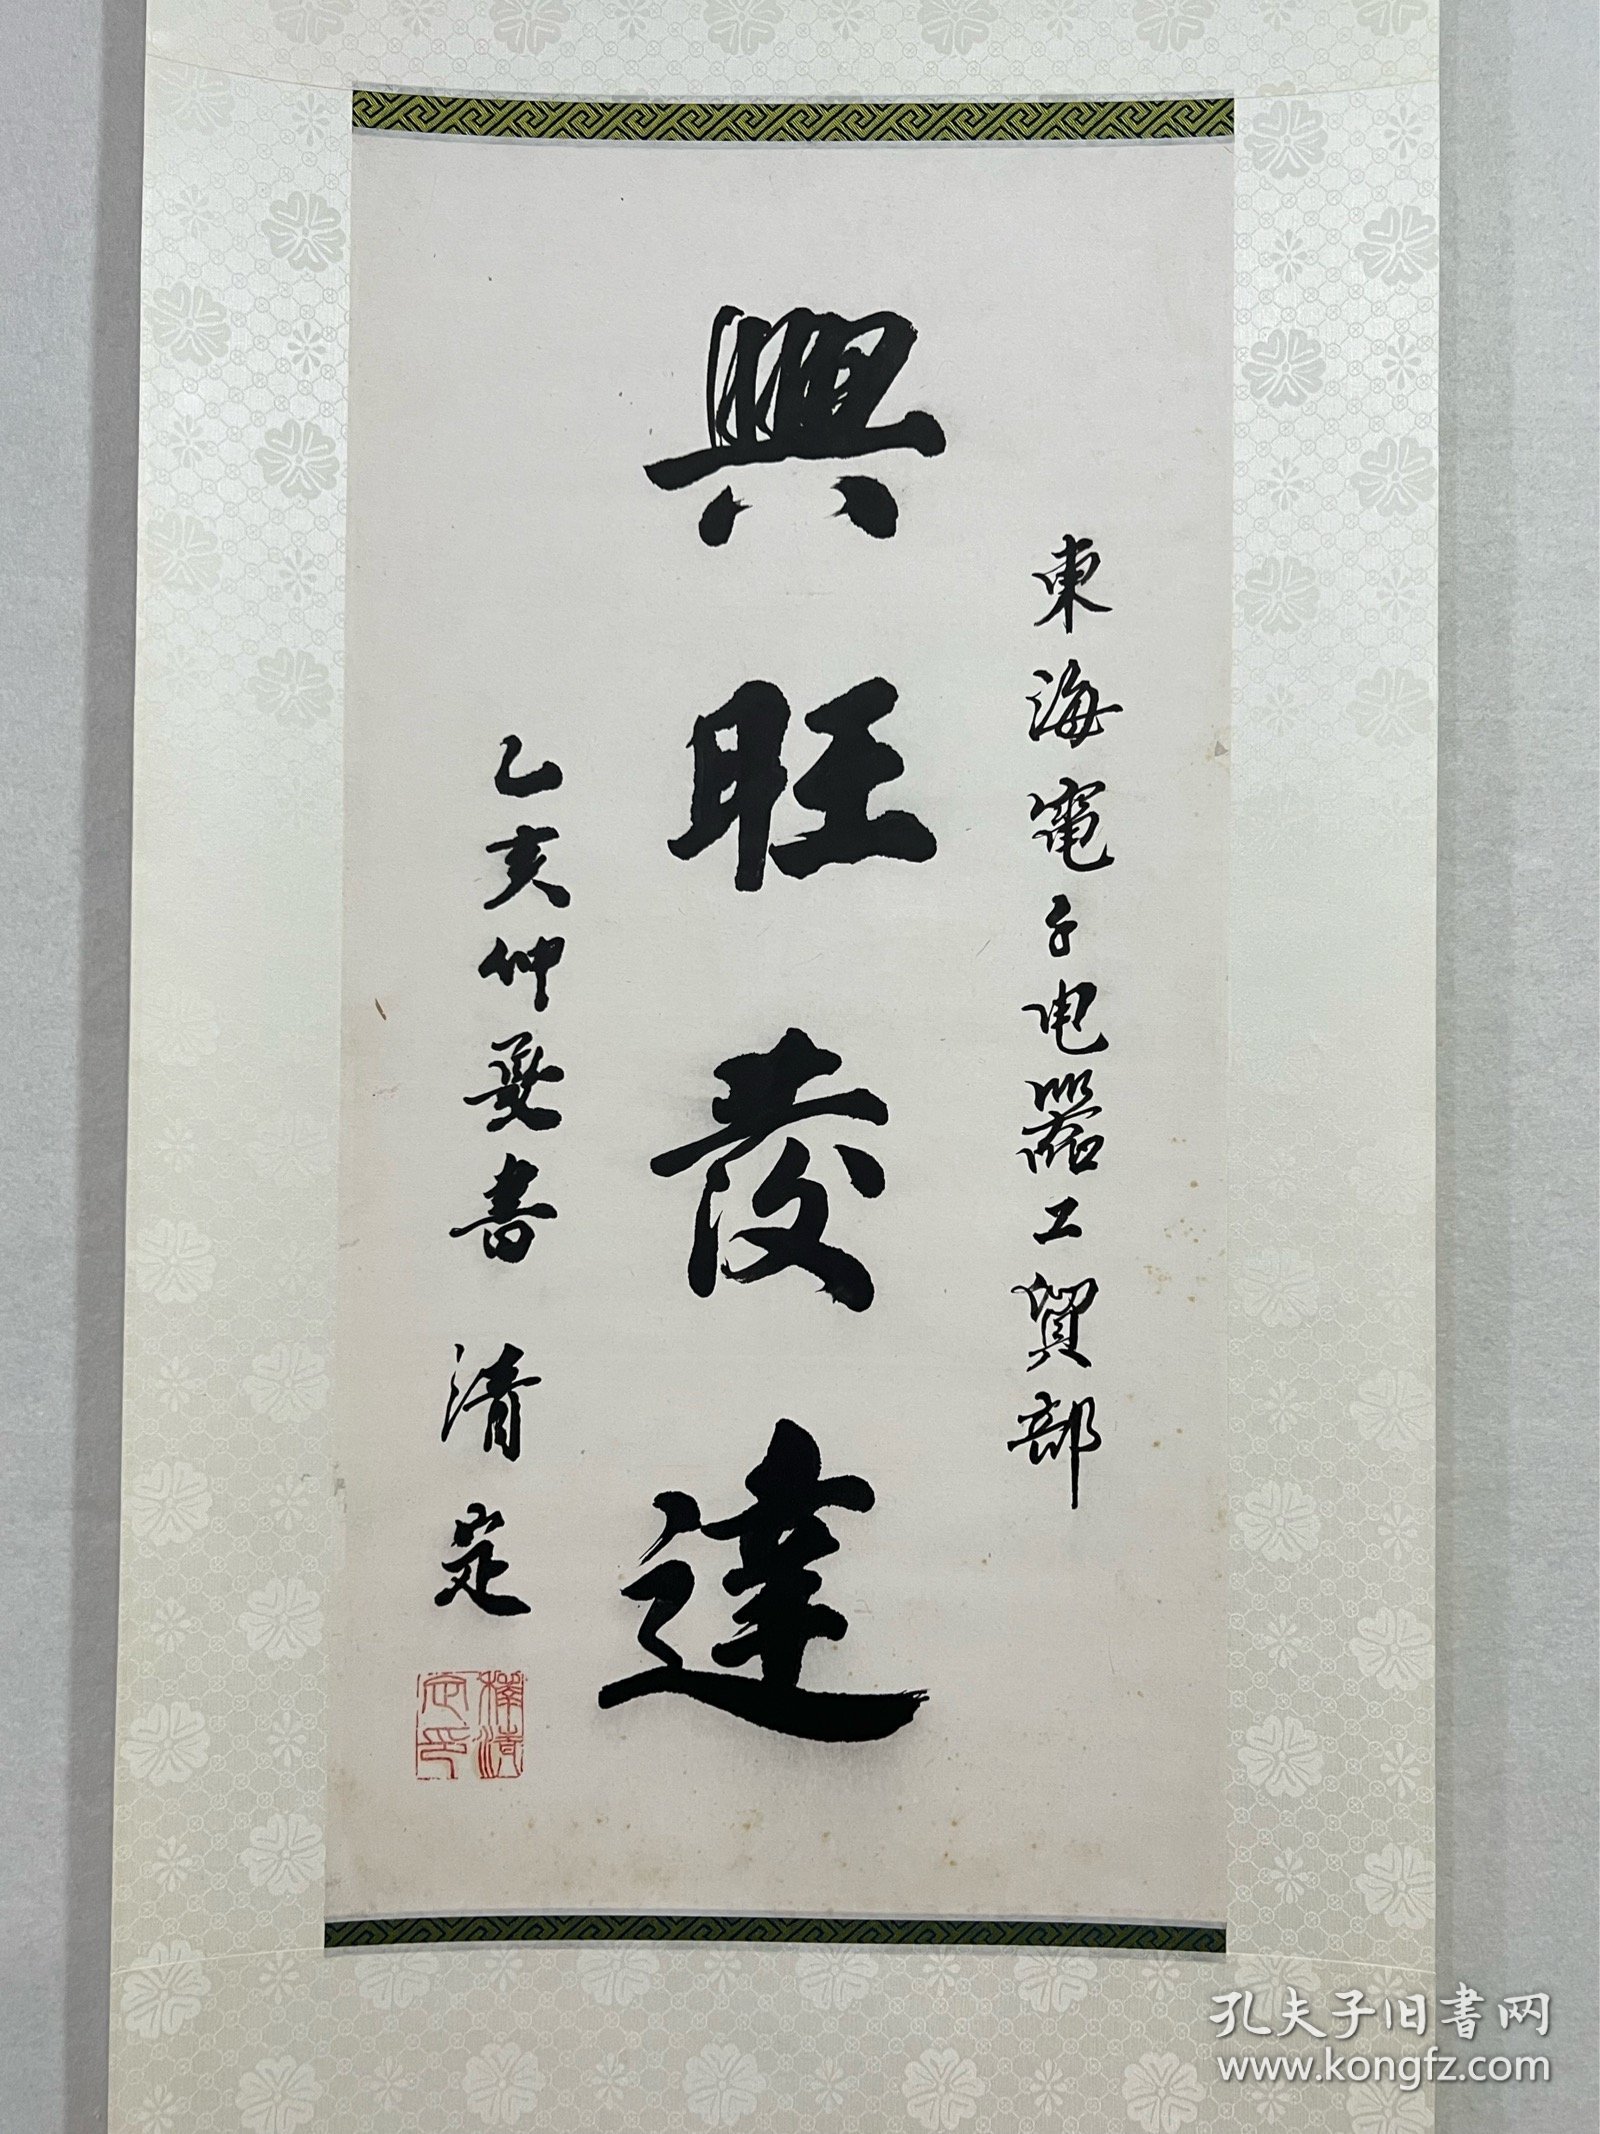 東海電子电器工貿部
興旺發達
乙亥仲夏書 清定
釋清定印
孔夫子旧书网
www.kongfz.com